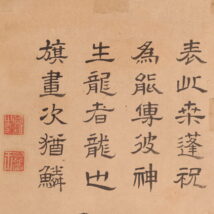 表此桑蓬祝
為能傳彼神
生龍者龍也
旗畫次猶鱗